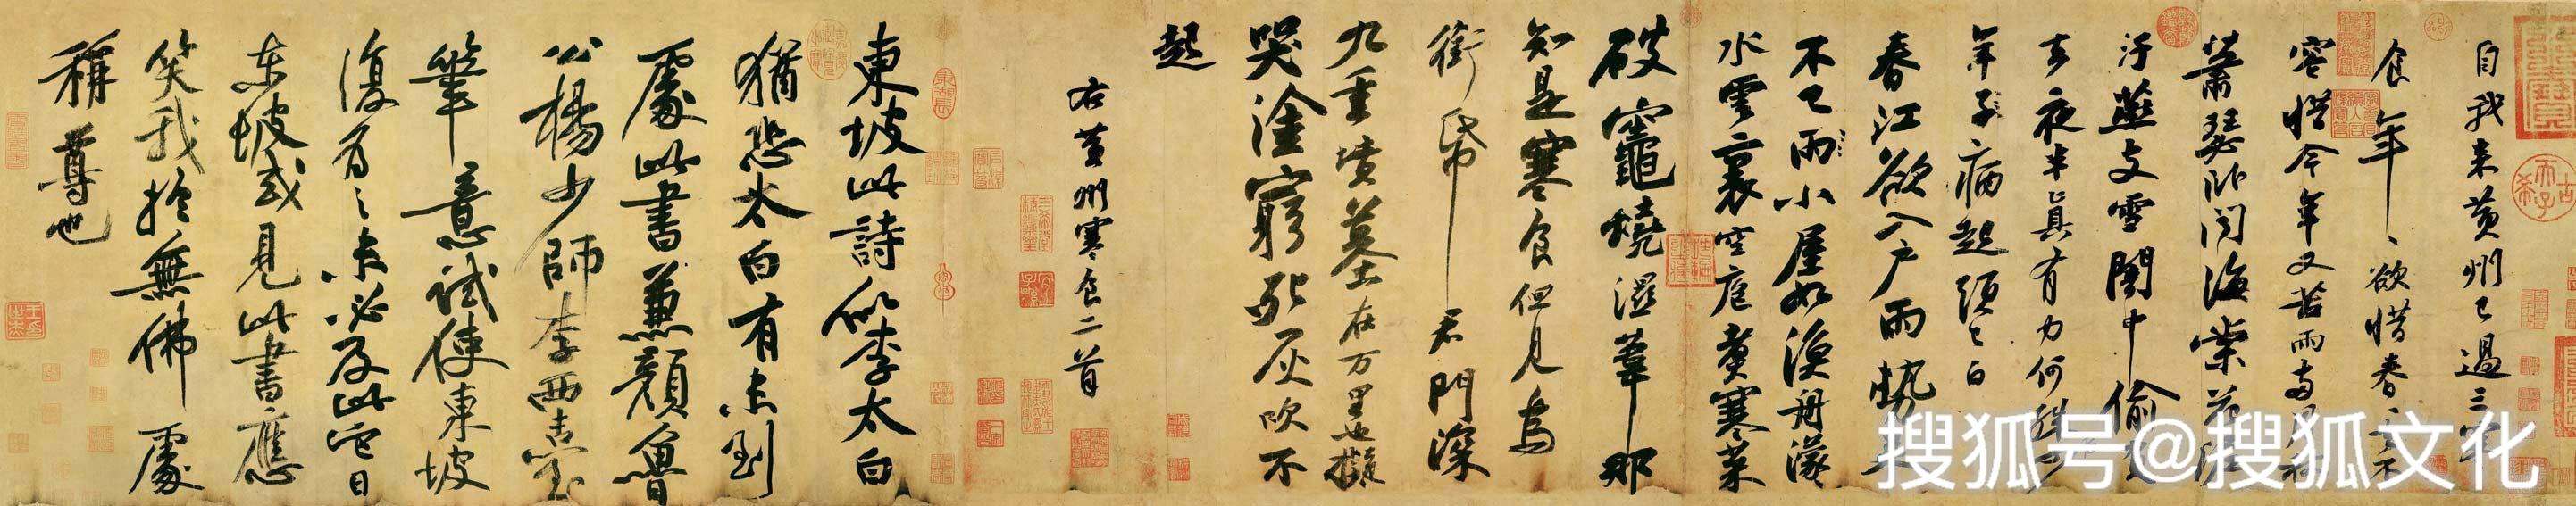 自我来黄州已過三寒
食年〻欲惜春〻去不
容惜今年又苦雨兩月秋
蕭瑟卧聞海棠花泥
汙燕支雪闇中偷負
去夜半真有力何殊少
年子病起頭已白
春江欲入户雨勢来
不已雨小屋如漁舟濛〻
水雲裏空庖煮寒菜
破竈燒濕葦那
知是寒食但見烏
銜帋君門深
九重墳墓在万里也擬
哭塗窮死灰吹不
起
右黄州寒食二首
東坡此詩似李太白
猶恐太白有未到
處此書兼顏魯
公楊少師李西臺
筆意試使東坡
復為之未必及此它日
東坡或見此書應
笑我於無佛處
稱尊也
搜狐号@搜狐文化